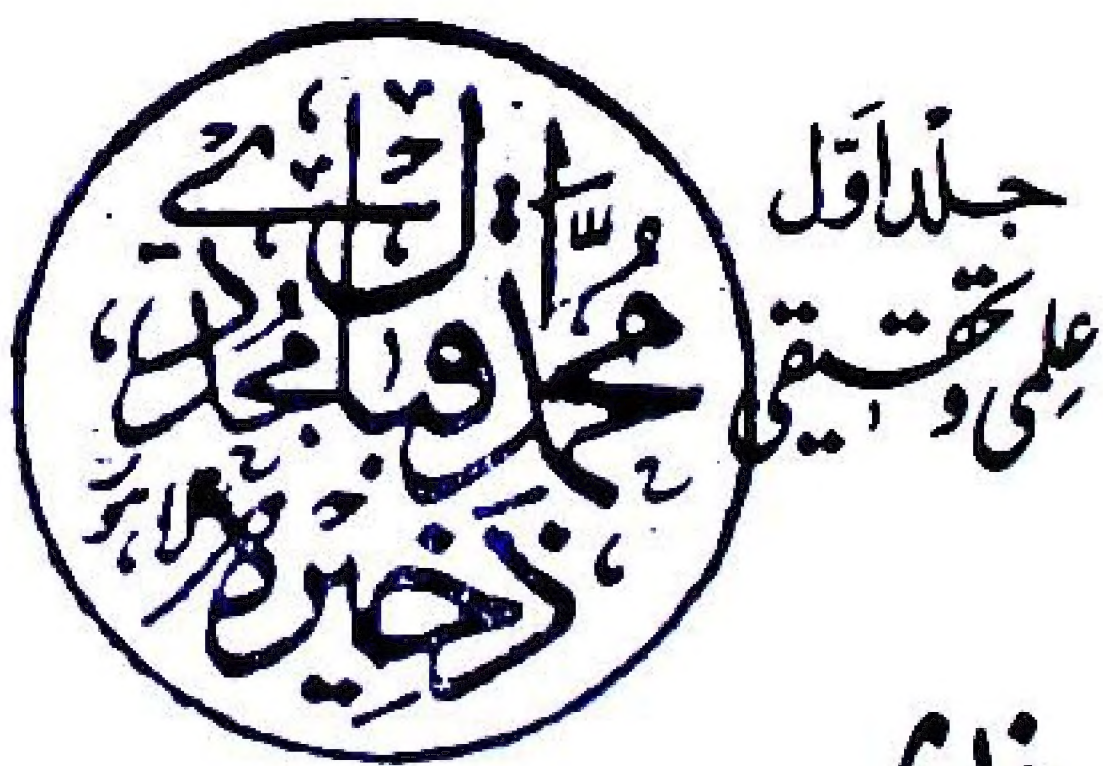 جلد اوّل
علمی و تحقیقی
ذخیرہ
محمد اقبال مجددی
لاہور